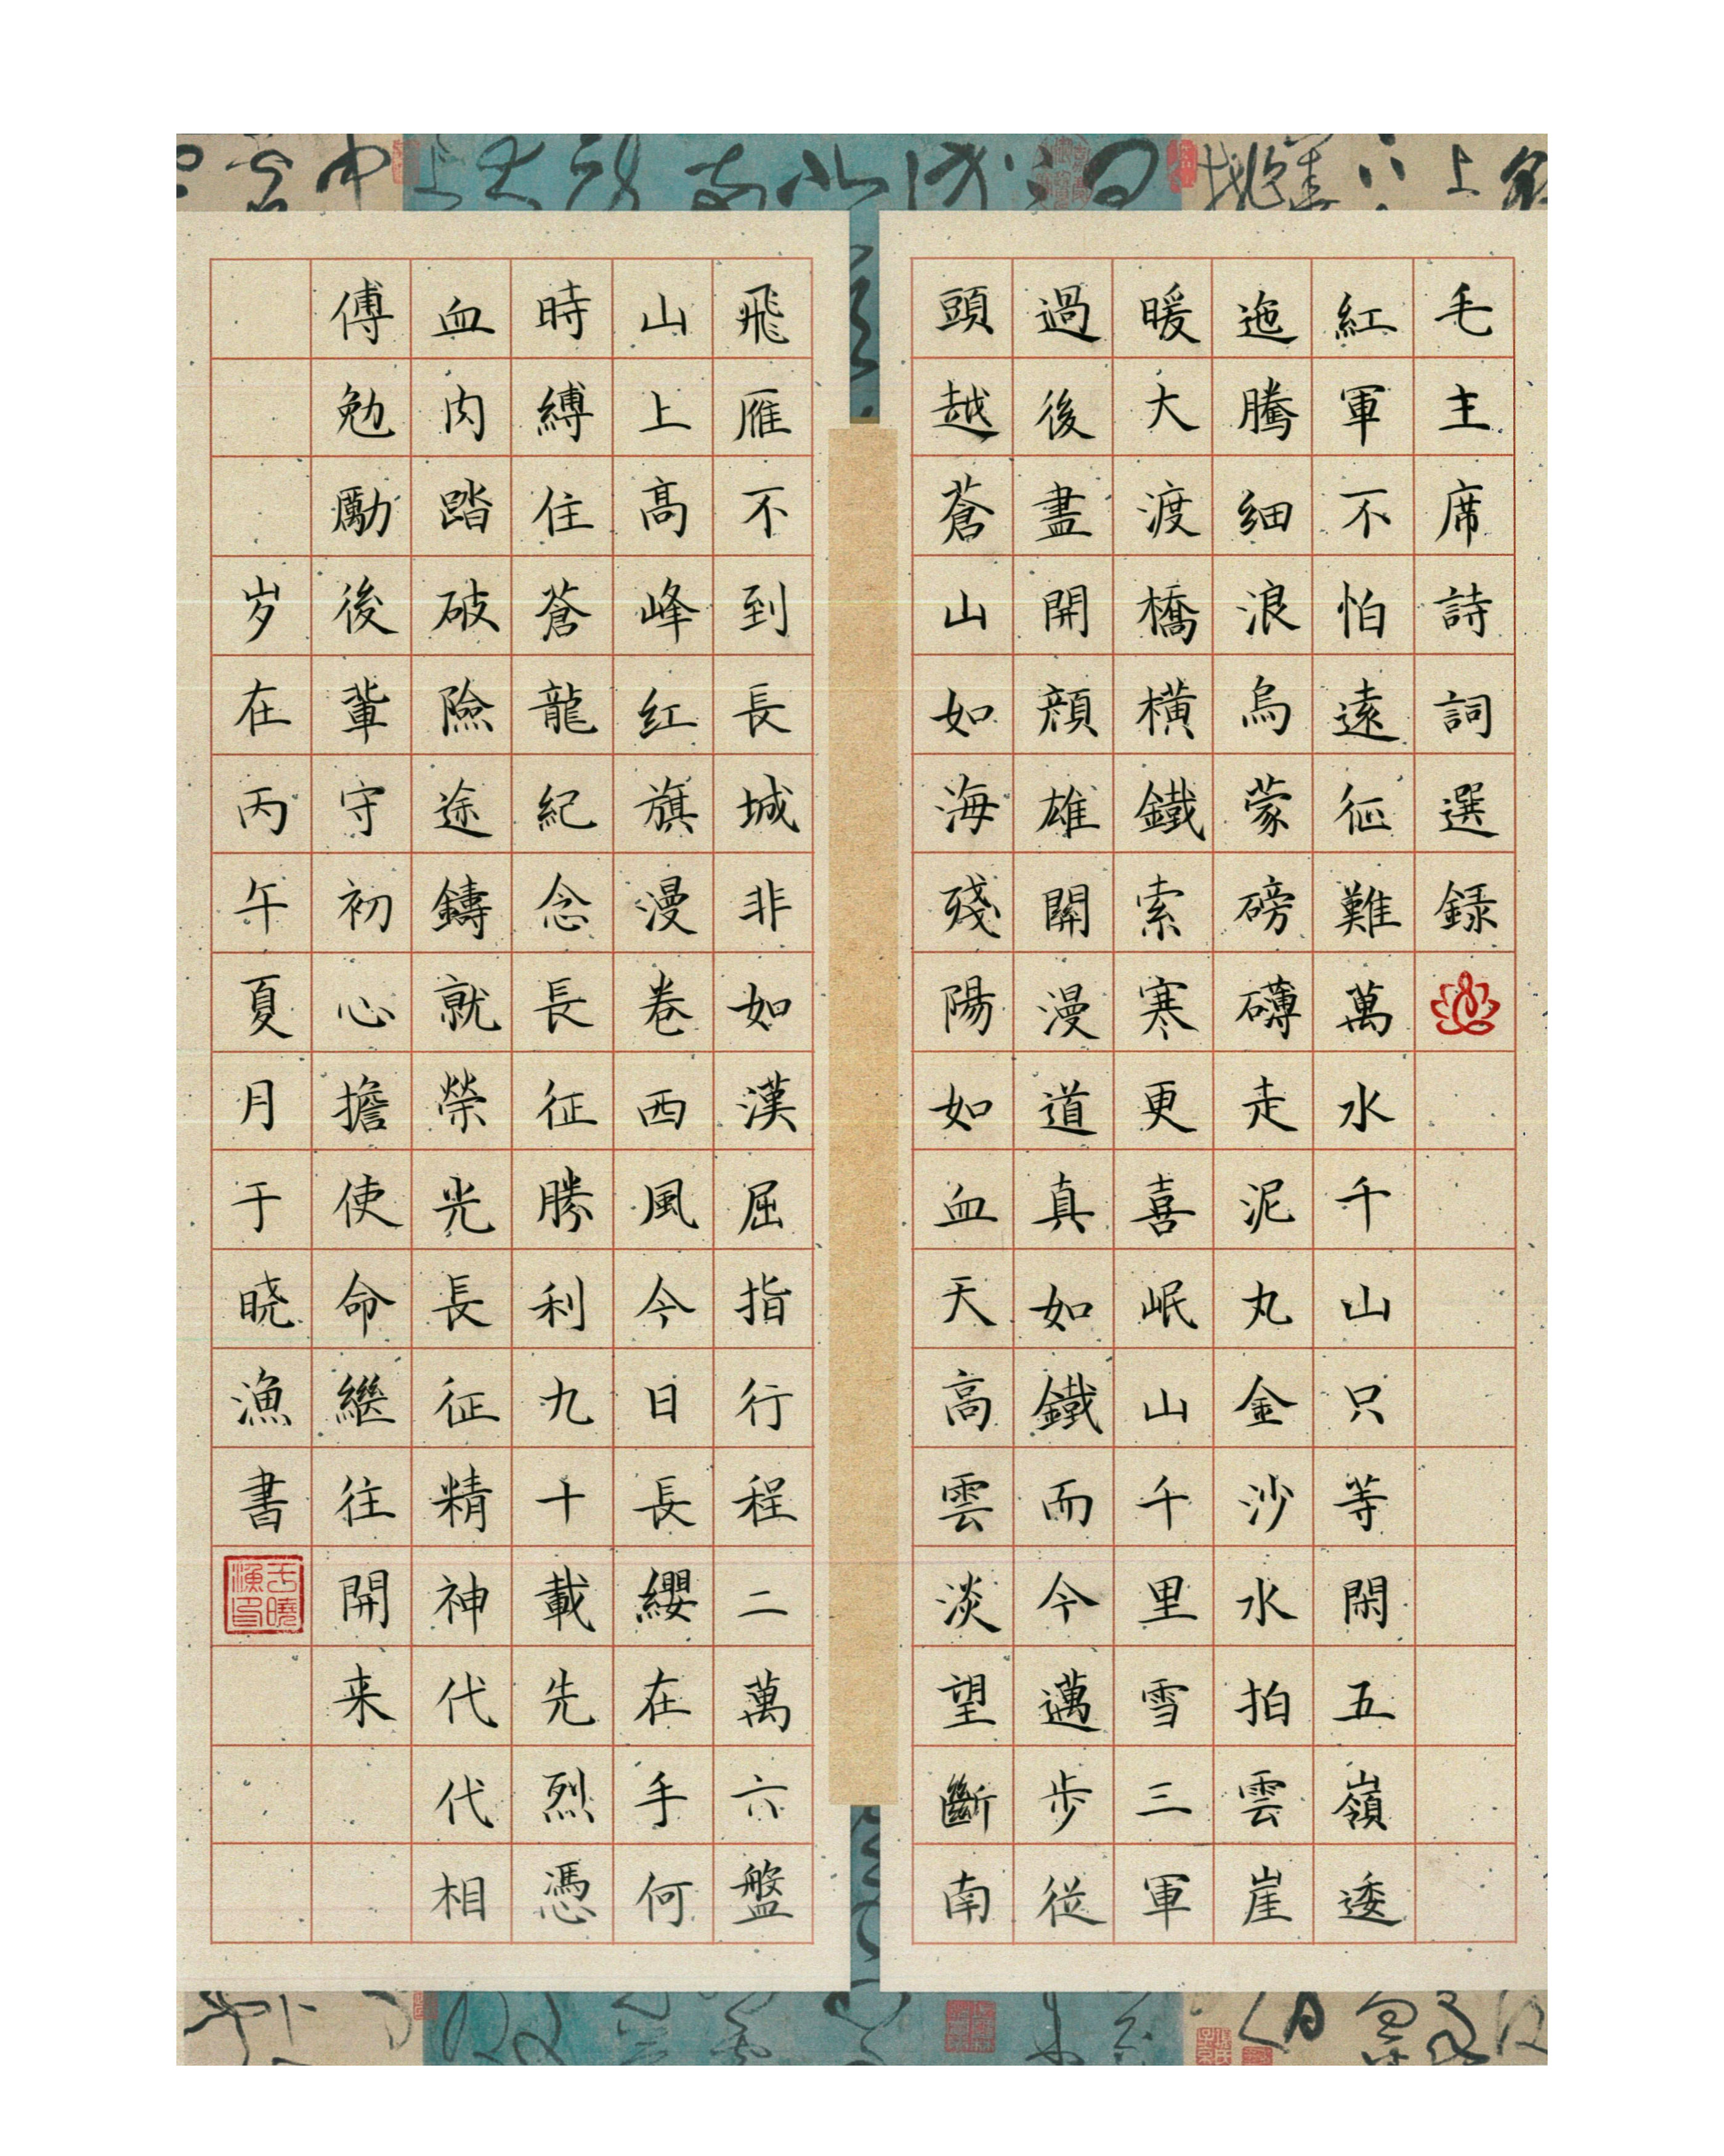 毛主席詩詞選録
紅軍不怕遠征難萬水千山只等閑五嶺逶
迤騰細浪烏蒙磅礴走泥丸金沙水拍雲崖
暖大渡橋橫鐵索寒更喜岷山千里雪三軍
過後盡開顏雄關漫道真如鐵而今邁步從
頭越蒼山如海殘陽如血天高雲淡望斷南
飛雁不到長城非如漢屈指行程二萬六盤
山上高峰红旗漫卷西風今日長纓在手何
時縛住蒼龍紀念長征勝利九十載先烈憑
血肉踏破險途鑄就榮光長征精神代代相
傅勉勵後輩守初心擔使命繼往開来
岁在丙午夏月于晓漁書